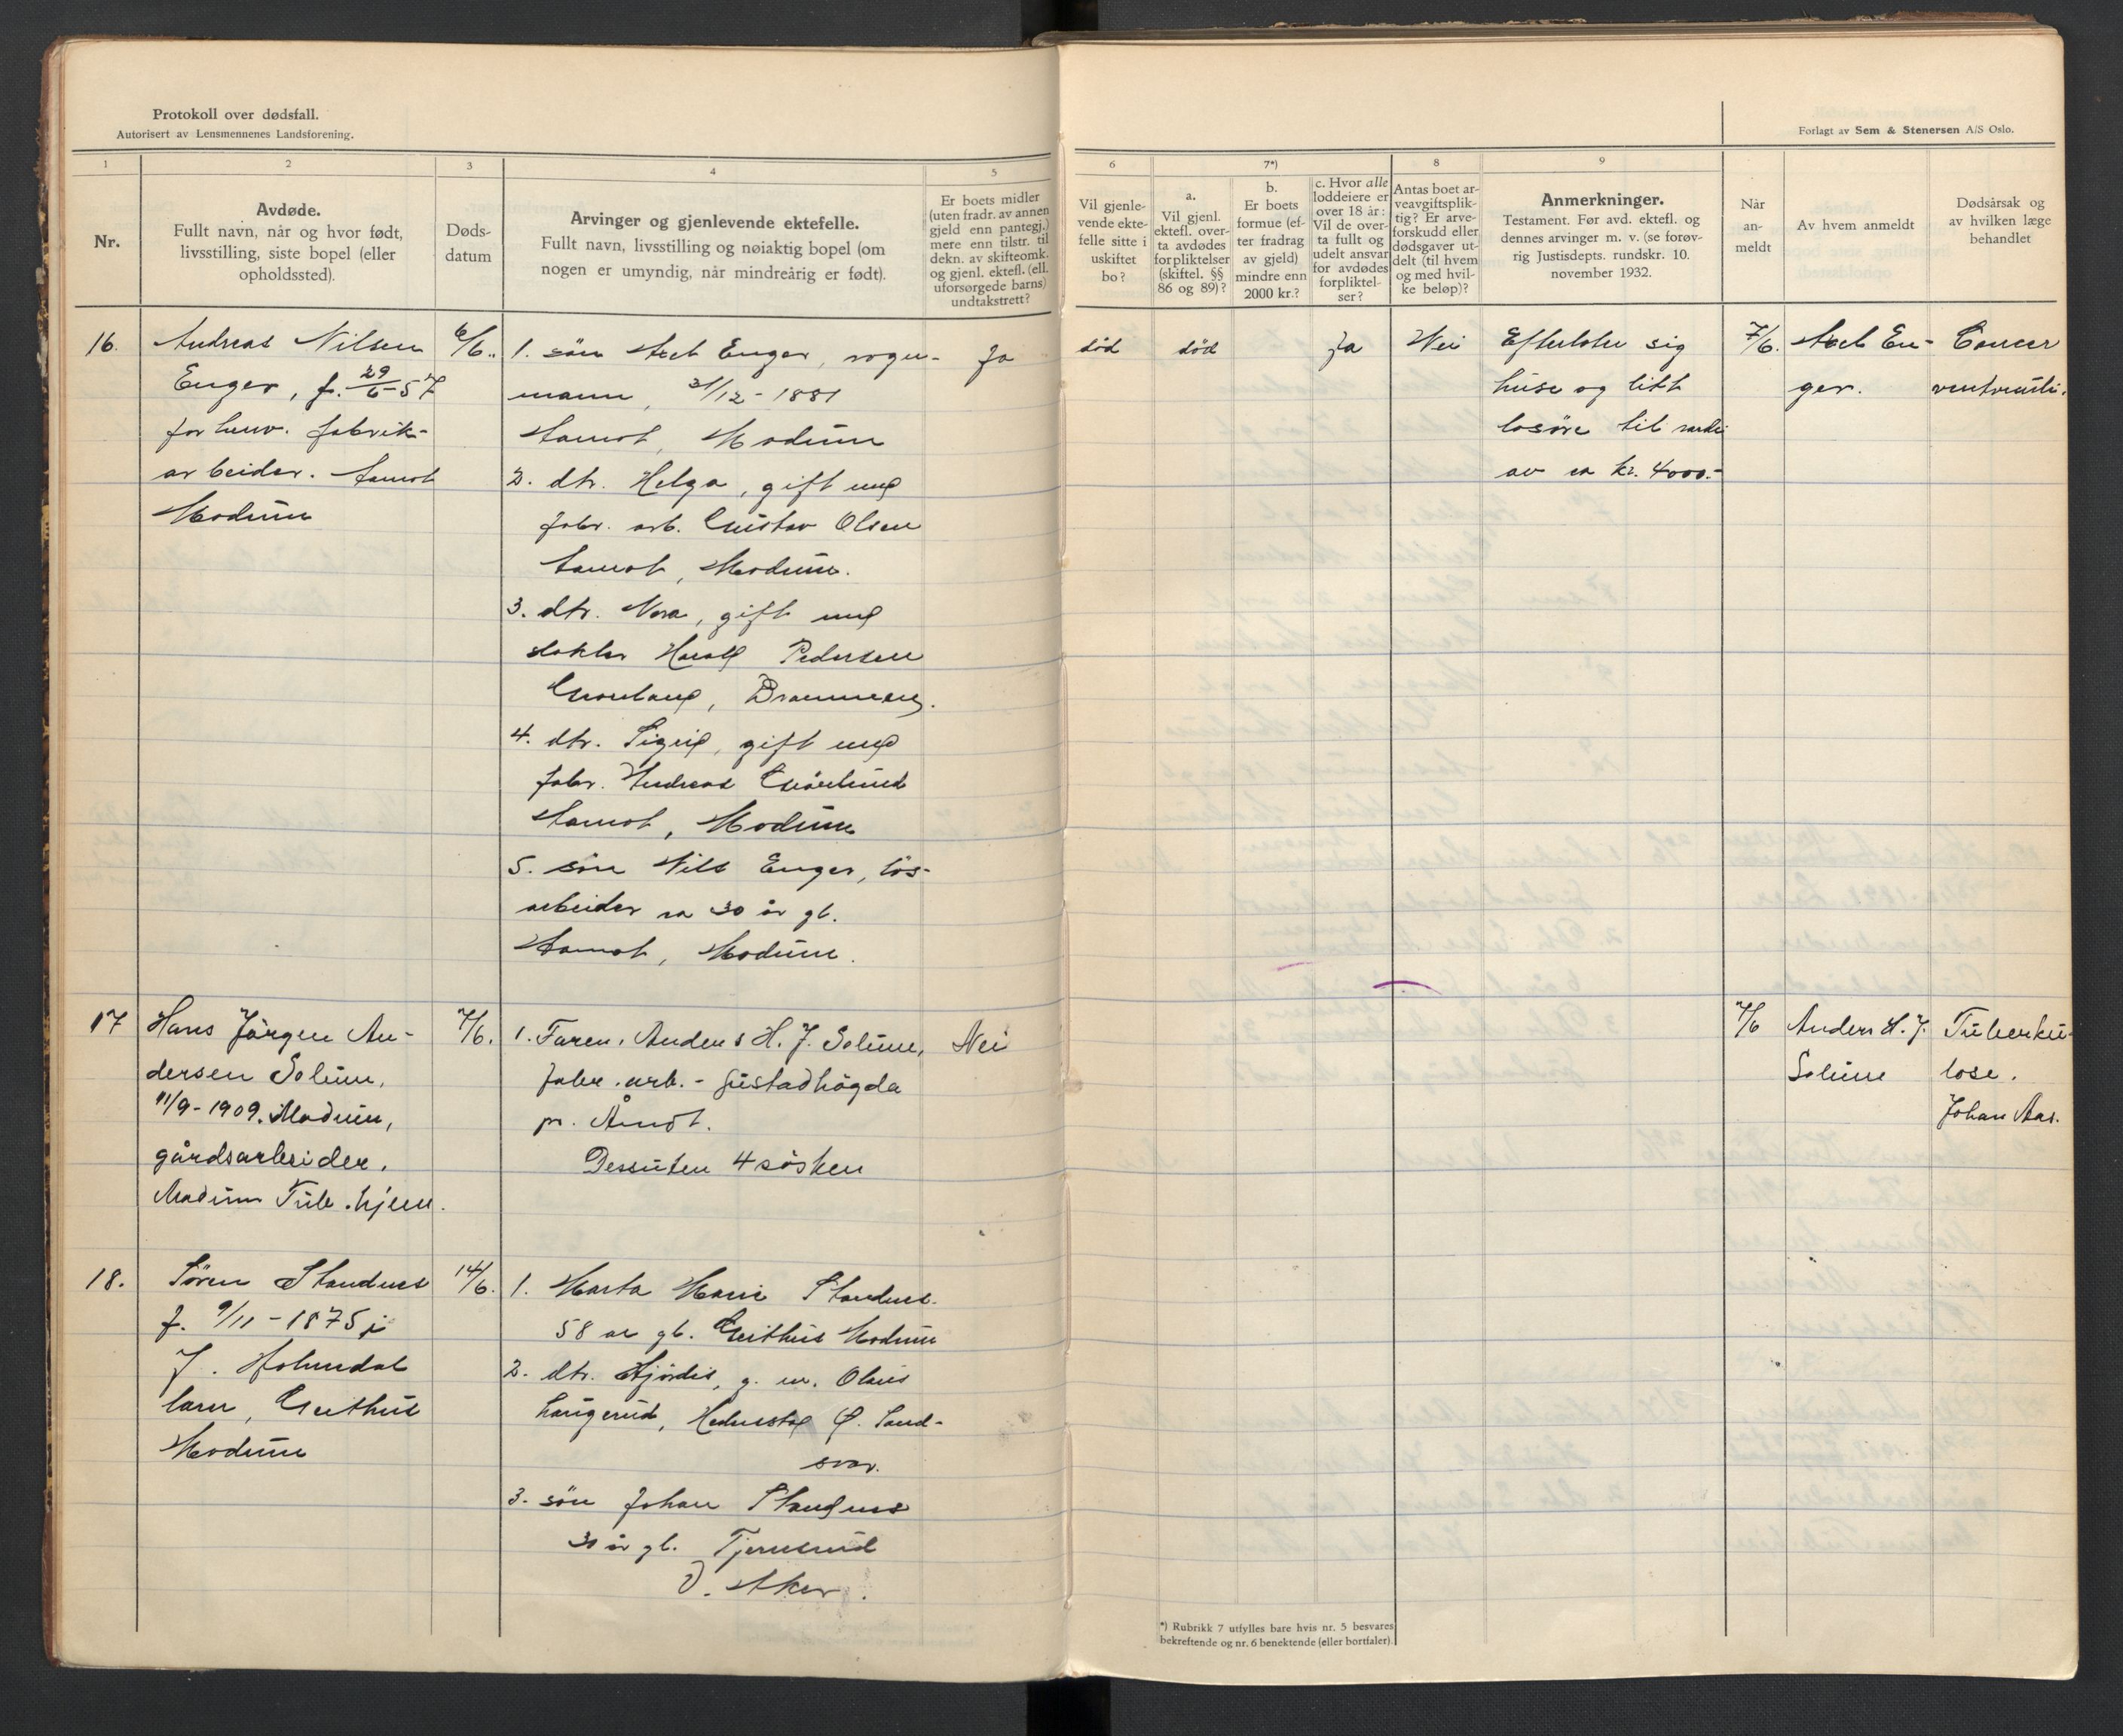 Protokoll over dødsfall.
Autorisert av Lensmennenes Landsforening.
1
2
3
4
5
Nr.
Avdøde.
Fullt navn, når og hvor født,
livsstilling, siste bopel (eller
opholdssted).
Døds-
datum
Arvinger og gjenlevende ektefelle.
Fullt navn, livsstilling og nøiaktig bopel (om
nogen er umyndig, når mindreårig er født).
Er boets midler
(uten fradr. av annen
gjeld enn pantegj.)
mere enn tilstr. til
dekn. av skifteomk.
og gjenl. ektefl. (ell.
uforsørgede barns)
undtakstrett?
16.
Andreas Nilsen
Enger, f. 29/6-57
forhenv. fabrik-
arbeider. Aamot
Modum
6/6.
1. sön Axel Enger, vogn-
mann, 31/12-1881
Aamot, Modum
2. dtr. Helga, gift med
fabr. arb. Gustav Olsen
Aamot, Modum.
3. dtr. Nora, gift med
slakter Harald Pedersen
Grønland, Drammen.
4. dtr. Sigrid, gift med
fabr. Andreas
Aamot, Modum
5. sön Nils Enger, lös-
arbeider ca 30 år gl.
Aamot, Modum.
Ja
17
Hans Jörgen An-
dersen Solum,
11/9-1909. Modum,
gårdsarbeider.
Modum Tub. hjem.
7/6.
1. Faren, Anders H. J. Solum,
fabr. arb. - Gustadhögda
pr. Åmot.
Dessuten 4 sösken
Nei
18.
Sören Standnes
f. 9/11-1875 i
J. Holmdal
Geithus
Modum
14/6.
1. Marta Marie Standnes
58 år gl. Geithus Modum
2. dtr. Hjördis, g. m. Olaus
Langerud, Hedenstad Ø. Sand-
svær.
3. sön Johan Standnes
30 år gl. Tjernsrud
V. Aker.
Forlagt av Sem & Stenersen A/S Oslo.
6
7*)
8
9
Vil gjenle-
vende ekte-
felle sitte i
uskiftet
bo?
a.
Vil gjenl.
ektefl. over-
ta avdødes
forpliktelser
(skiftel. §§
86 og 89)?
b.
Er boets
formue (ef-
ter fradrag
av gjeld)
mindre enn
2000 kr.?
c. Hvor alle
loddeiere er
over 18 år:
Vil de over-
ta fullt og
udelt ansvar
for avdødes
forpliktel-
ser?
Antas boet ar-
veavgiftsplik-
tig? Er arve-
forskudd eller
dødsgaver ut-
delt (til hvem
og med hvil-
ke beløp)?
Anmerkninger.
Testament. Før avd. ektefl. og
dennes arvinger m. v. (se forøv-
rig Justisdepts. rundskr. 10.
november 1932.
Når
an-
meldt
Av hvem anmeldt
Dødsårsak og
av hvilken læge
behandlet
död
död
Ja
Nei
Efterlater sig
huse og litt
lösöre til verdi
av ca kr. 4000.-
7/6.
Axel En-
ger.
Cancer
ventriculi.
7/6
Anders H. J.
Solum
Tuberku-
lose.
Johan Aas.
*) Rubrikk 7 utfylles bare hvis nr. 5 besvares
bekreftende og nr. 6 benektende (eller bortfaler).